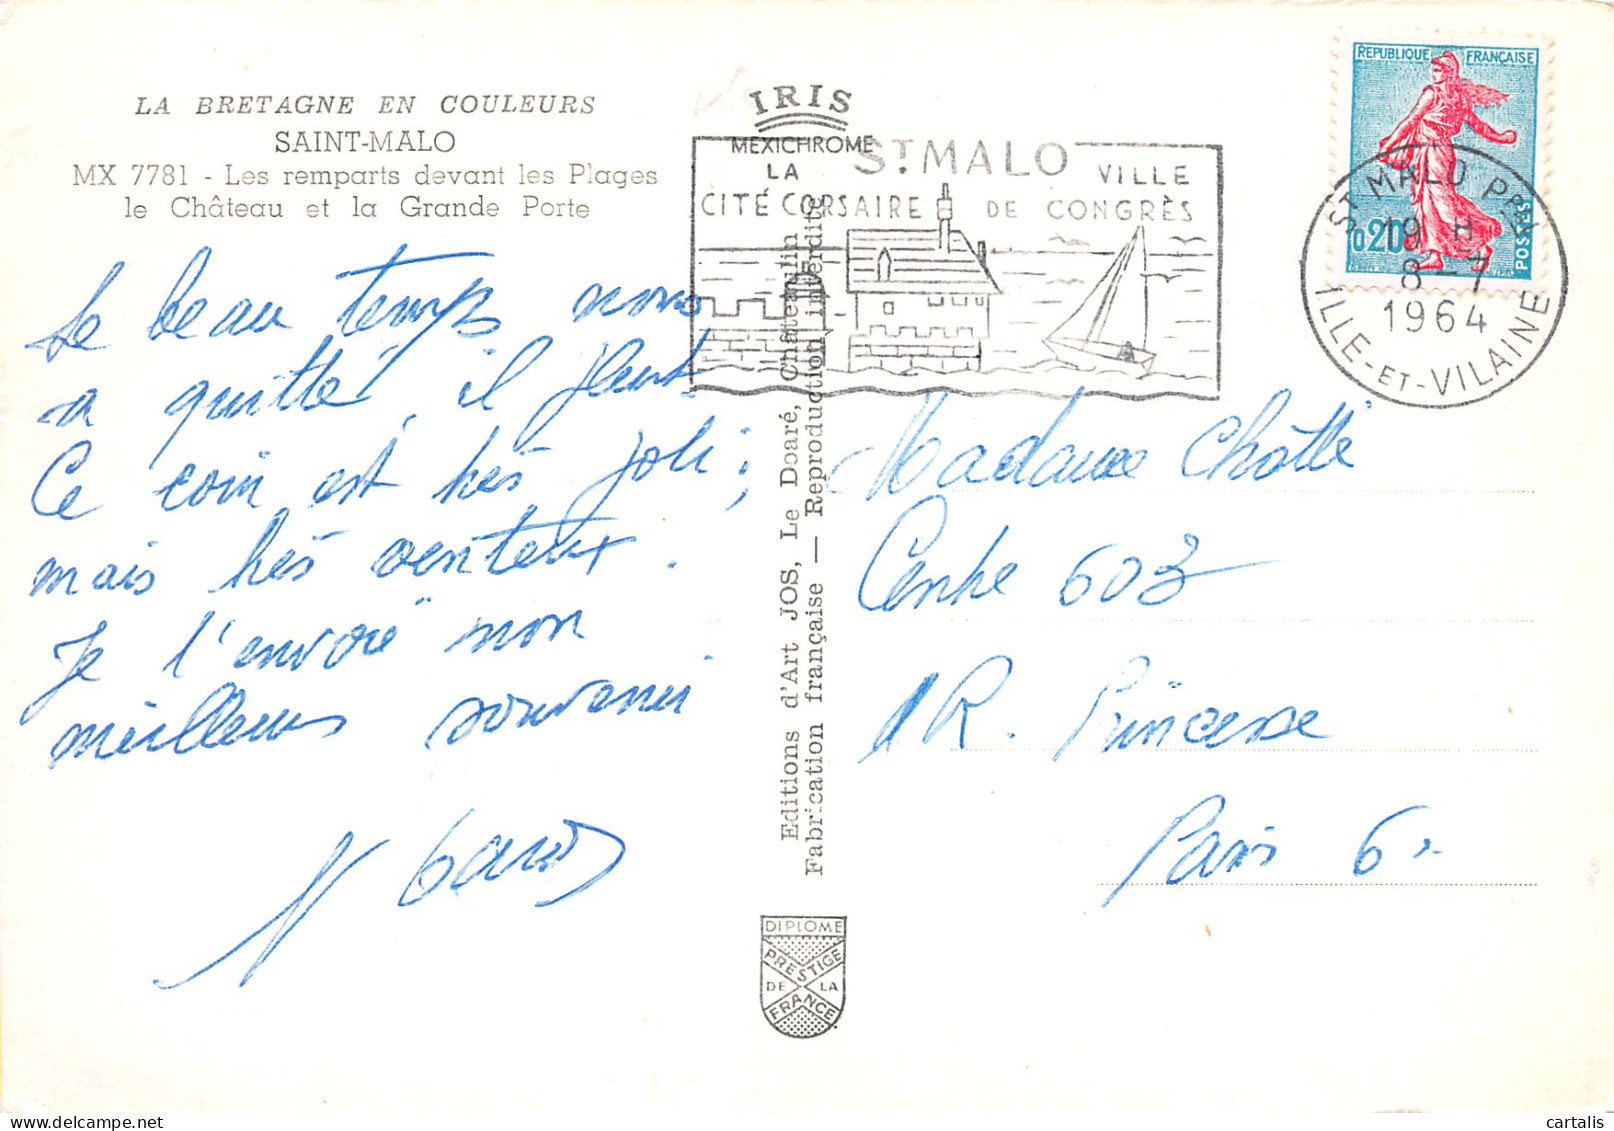 LA BRETAGNE EN COULEURS
SAINT-MALO
MX 7781 - Les remparts devant les Plages
le Château et la Grande Porte
Le beau temps nous
a quitté, il pleut
Ce coin est très joli ;
mais très venteux.
Je t'envoie mon
meilleurs souvenir
IRIS
MEXICHROME
ST MALO
LA CITÉ CORSAIRE
VILLE DE CONGRÈS
REPUBLIQUE FRANÇAISE
0,20
POSTES
ST MALO PPAL
19 H
8 - 7
1964
ILLE-ET-VILAINE
Editions d'Art JOS, Le Doaré, Châteaulin
Fabrication française — Reproduction interdite
Madame Chotté
Centre 603
1 R. Princesse
Paris 6e
DIPLOME
PRESTIGE
DE LA
FRANCE
cartalis
delcampe.net